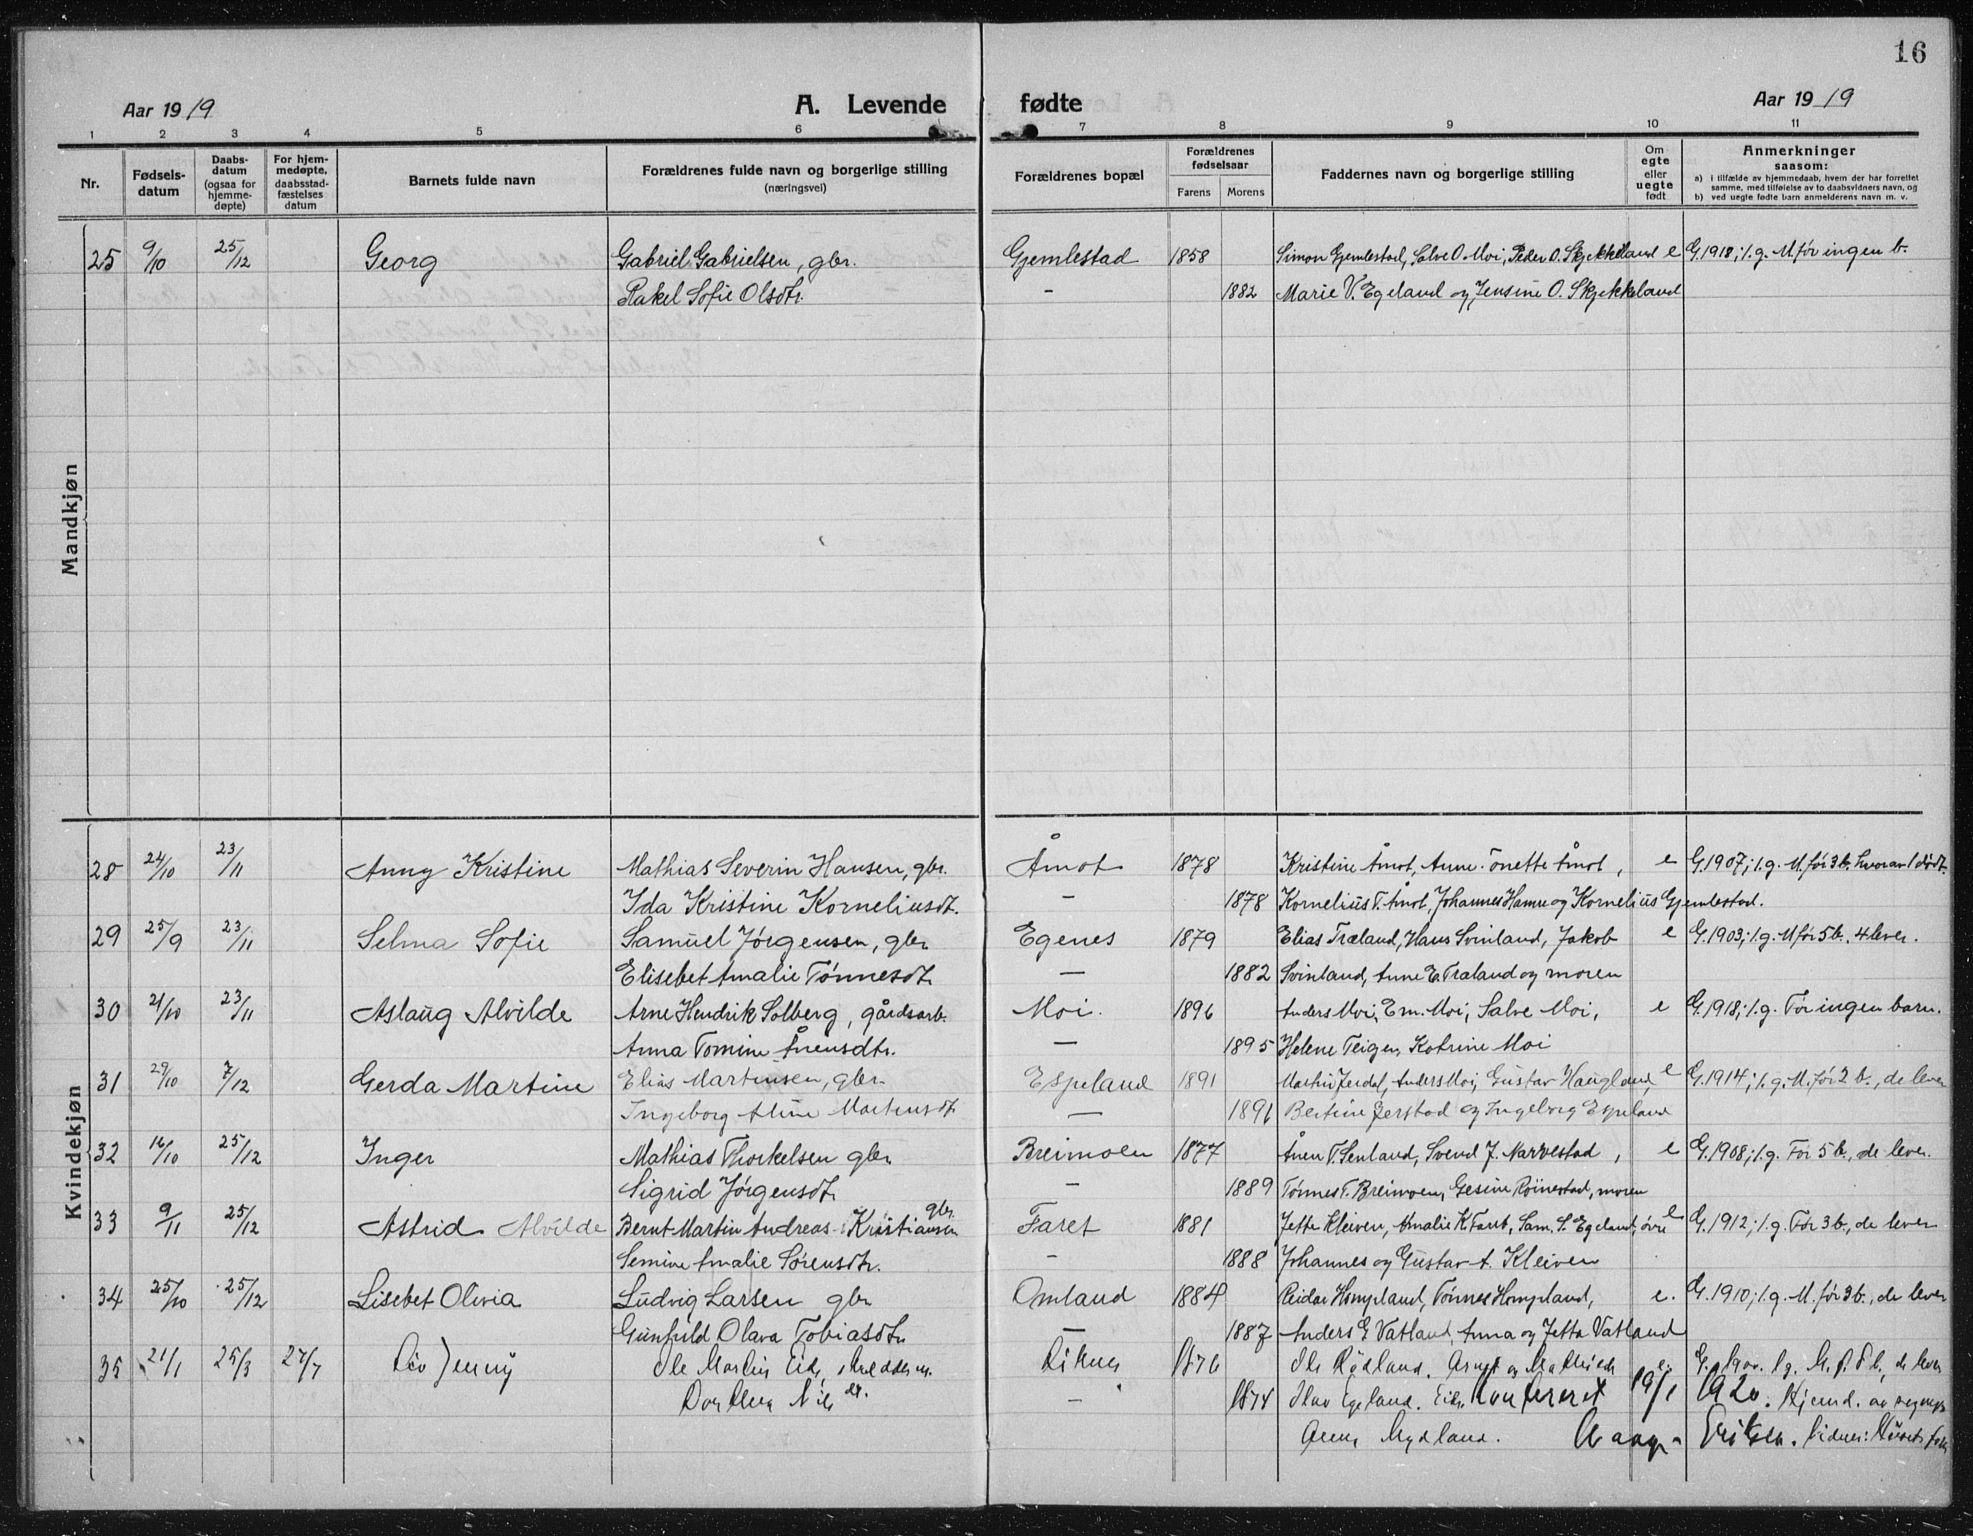 16
Aar 1919 A. Levende fødte Aar 1919
1 2 3 4 5 6 7 8 9 10 11
Nr. Fødsels-datum Daabs-datum (ogsaa for hjemme-døpte) For hjem-medøpte, daabsstad-fæstelses datum Barnets fulde navn Forældrenes fulde navn og borgerlige stilling (næringsvei) Forældrenes bopæl Forældrenes fødselsaar Farens Morens Faddernes navn og borgerlige stilling Om egte eller uegte født Anmerkninger saasom:
a) i tilfælde av hjemmedaab, hvem der har forrettet samme, med tilføielse av to daabsvidners navn, og
b) ved uegte fødte barn anmelderens navn m. v.
Mandkjøn
25 9/10 25/12 Georg Gabriel Gabrielsen, gbr. Gjemlestad 1858 Simon Gjemlestad, Salve O. Moi, Peder O. Skjekkeland e G. 1918; 1. g. M. før ingen b.
Rakel Sofie Olsdtr. - 1882 Marie V. Egeland og Jensine O. Skjekkeland
Kvindekjøn
28 24/10 23/11 Anny Kristine Mathias Severin Hansen, gbr. Åmot 1878 Kristine Åmot, Anne Tonette Åmot, e G. 1907; 1. g. M. før 3 b. hvorav 1 dødt.
Ida Kristine Korneliusdt. - 1878 Kornelius T. Åmot, Johannes Hamre og Kornelius Gjemlestad.
29 25/9 23/11 Selma Sofie Samuel Jørgensen, gbr Egenes 1879 Elias Træland, Hans Svinland, Jakob e G. 1903; 1. g. M før 5 b. 4 lever.
Elisebet Amalie Tønnesdt. - 1882 Svinland, Anne E. Træland og moren
30 21/10 23/11 Aslaug Alvilde Arne Hendrik Solberg, gårdsarb. Moi. 1896 Anders Moi, Em. Moi, Salve Moi, e G. 1918; 1. g. Før ingen barn.
Anna Tomine Ånensdtr. - 1895 Helene Teigen, Katrine Moi
31 29/10 7/12 Gerda Martine Elias Martinsen, gbr. Espeland 1891 Martin Jerdal, Anders Moi, Gustav Haugland, e G. 1914; 1. g. M. før 2 b., de lever
Ingeborg Aline Martensdt. - 1891 Bertine Jerstad og Ingeborg Espeland
32 16/10 25/12 Inger Mathias Thorkelsen gbr Breimoen 1877 Ånen T. Senland, Svend J. Narvestad, e G. 1908; 1. g. Før 5 b., de lever.
Sigrid Jørgensdt. - 1889 Tønnes T. Breimoen, Gesine Røinestad, moren
33 9/11 25/12 Astrid Alvilde Bernt Martin Andreas Kristiansen gbr. Faret 1881 Jette Kleiven, Amalie K. Faret, Sam. S. Egeland, øvre e G. 1912; 1. g. Før 3 b., de lever
Semine Amalie Sørensdtr. - 1888 Johannes og Gustav A. Kleiven
34 25/10 25/12 Lisebet Olivia Ludvig Larsen gbr Omland 1884 Reidar Hompland, Tønnes Hompland, e. G. 1910; 1. g. M. før 3 b., de lever
Gunhild Olava Tobiasdtr - 1887 Anders E Vatland, Anna og Jetta Vatland
35 21/1 25/3 27/7 Liv Jenny Ole Martin Eide, skredderm. 1876 Ole Rødland. og e. G. 1g. M. f. 8 b, de lever
Dorthea Nilsdt. - 1874 Olav Egeland. Konfereret 19/1 1920. Hjemd. av
Anna Mydland. Aaage Eriksen.